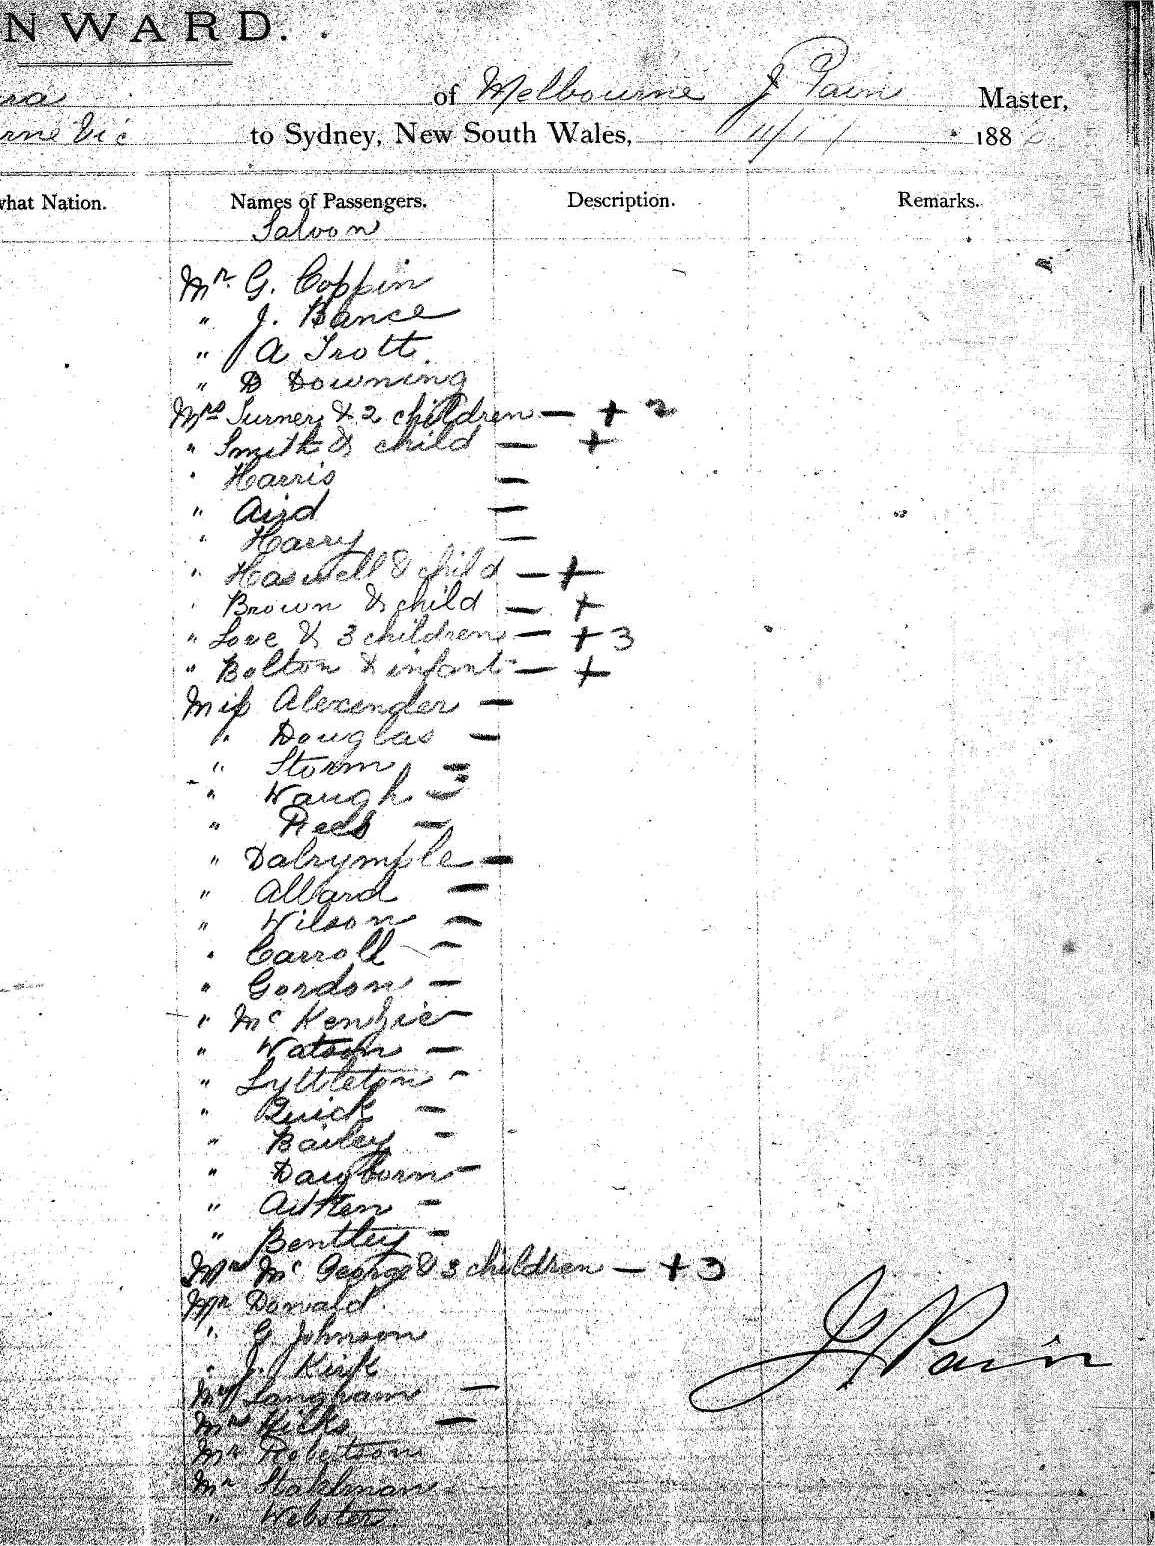 NWARD.
of Melbourne J Pain Master,
rne Vic to Sydney, New South Wales, 11/1/ 188
what Nation. Names of Passengers. Description. Remarks.
Saloon
Mr. G. Coppin
" J. Bance
" A Trott.
" D Downing
Mrs Turner & 2 children — + 2
" Smith & child — +
" Harris —
" Aird —
" Harry —
" Haswell & child — +
" Brown & child — +
" Love & 3 children — + 3
" Bolton & infant — +
Miss Alexender —
" Douglas —
" Storm —
" Waugh —
" Rees —
" Dalrymple —
" Allard —
" Wilson —
" Carroll —
" Gordon —
" Mc Kenzie —
" Watson —
" Lyttleton -
" Quick —
" Bailey -
" Dawborn —
" Aitken -
" Bentley -
Mrs Mc George & 3 children — + 3
Mr Donald
" G Johnson
" J. Kirk
J Pain
Langham —
Mrs Hicks —
Mr Robertson
Mr
" Webster.